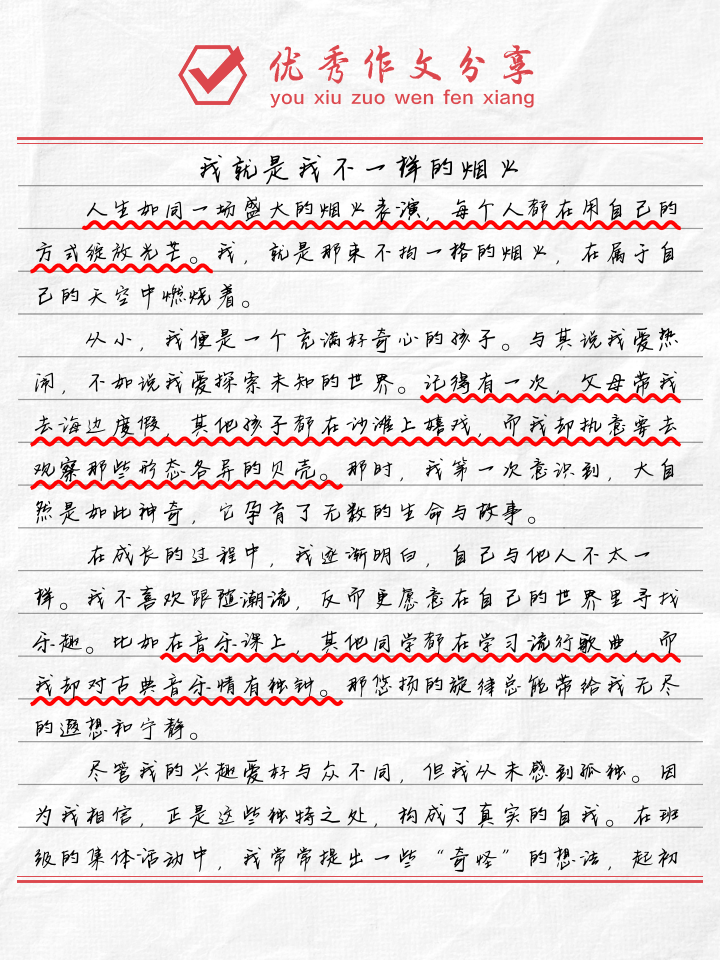 优秀作文分享
you xiu zuo wen fen xiang
我就是我不一样的烟火
人生如同一场盛大的烟火表演，每个人都在用自己的
方式绽放光芒。我，就是那束不拘一格的烟火，在属于自
己的天空中燃烧着。
从小，我便是一个充满好奇心的孩子。与其说我爱热
闹，不如说我爱探索未知的世界。记得有一次，父母带我
去海边度假，其他孩子都在沙滩上嬉戏，而我却执意要去
观察那些形态各异的贝壳。那时，我第一次意识到，大自
然是如此神奇，它孕育了无数的生命与故事。
在成长的过程中，我逐渐明白，自己与他人不太一
样。我不喜欢跟随潮流，反而更愿意在自己的世界里寻找
乐趣。比如在音乐课上，其他同学都在学习流行歌曲，而
我却对古典音乐情有独钟。那悠扬的旋律总能带给我无尽
的遐想和宁静。
尽管我的兴趣爱好与众不同，但我从未感到孤独。因
为我相信，正是这些独特之处，构成了真实的自我。在班
级的集体活动中，我常常提出一些“奇怪”的想法，起初